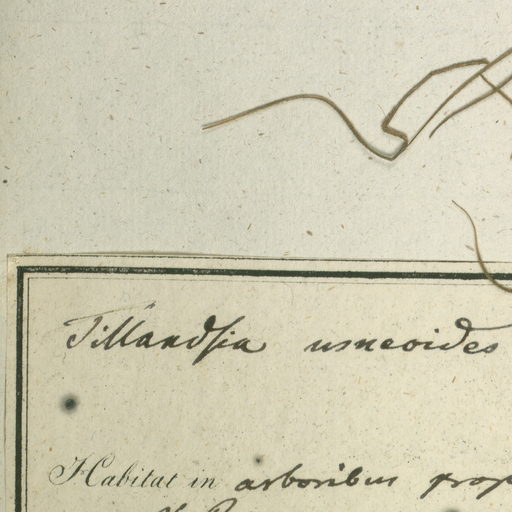 Tillandsia usneoides
Habitat in arboribus prop